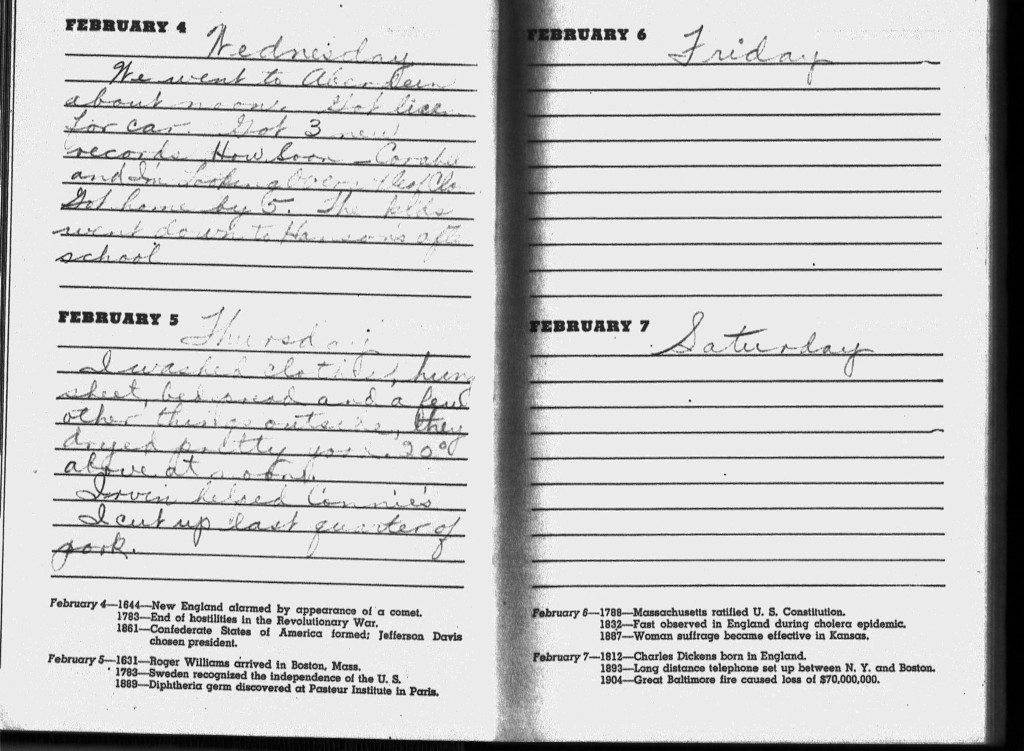 FEBRUARY 4
Wednesday
We went to Aberdeen
about noon. Got
for car. Got 3 new
records How Soon -
and I'm Looking Over
Got home by 5. The kids
went down to Hanson's
school
FEBRUARY 5
Thursday
I washed clothes, hung
sheet, bedspread and a few
other things outside, they
dryed pretty good. 20°
above at noon.
Irvin helped Connie's
I cut up last quarter of
pork.
February 4—1644—New England alarmed by appearance of a comet.
1783—End of hostilities in the Revolutionary War.
1861—Confederate States of America formed; Jefferson Davis
chosen president.
February 5—1631—Roger Williams arrived in Boston, Mass.
1783—Sweden recognized the independence of the U. S.
1889—Diphtheria germ discovered at Pasteur Institute in Paris.
FEBRUARY 6
Friday
FEBRUARY 7
Saturday
February 6—1788—Massachusetts ratified U. S. Constitution.
1832—Fast observed in England during cholera epidemic.
1887—Woman suffrage became effective in Kansas.
February 7—1812—Charles Dickens born in England.
1893—Long distance telephone set up between N. Y. and Boston.
1904—Great Baltimore fire caused loss of $70,000,000.